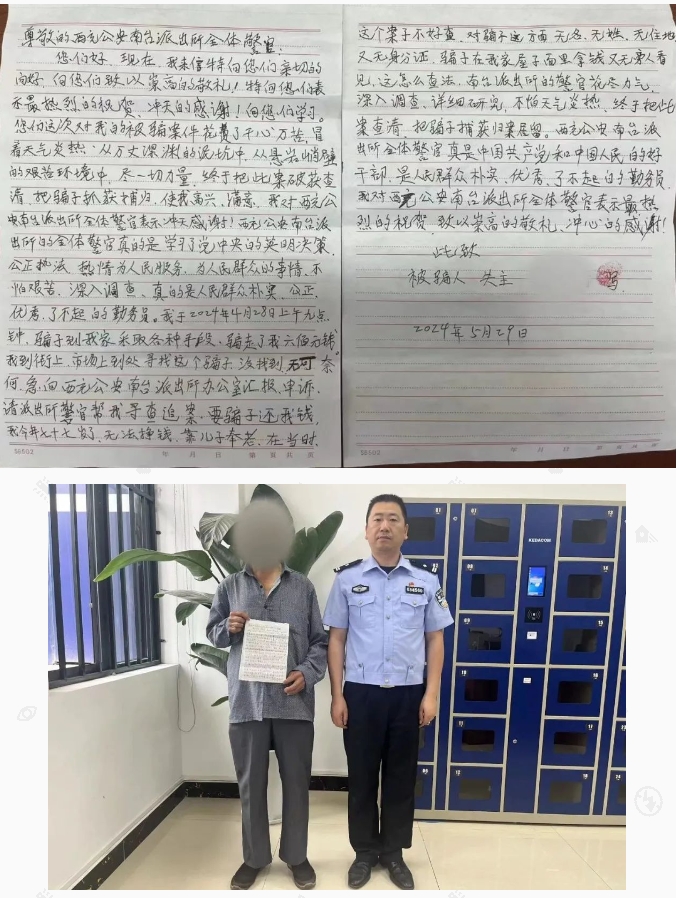 尊敬的西充公安南台派出所全体警官:
您们好,现在,我来信特向您们亲切的
问好,向您们致以崇高的敬礼!特向您们表
示最热烈的祝贺、冲天的感谢!向您们学习。
您们这次对我的被骗案件花费了千心万苦,冒
着天气炎热,从万丈深渊的泥坑中,从悬岩峭壁
的艰险环境中,尽一切力量,终于把此案破获查
清,把骗子抓获捕归,使我高兴、满意,我对西充公
安南台派出所全体警官表示冲天感谢!西充公安南台派
出所的全体警官真的是学习了党中央的英明决策,
公正执法,热情为人民服务,为人民群众的事情,不
怕艰苦,深入调查,真的是人民群众朴实、公正、
优秀、了不起的勤务员。我于2024年4月28日上午九点
钟,骗子到我家采取各种手段,骗走了我六佰元钱,
我到街上,市场上到处寻找这个骗子,没找到,无可奈
何,急向西充公安南台派出所办公室汇报、申诉,
请派出所警官帮我寻查追案,要骗子还我钱,
我今年七十七岁了,无法挣钱,靠儿子奉老,在当时,
56502 年 月 日 第 页 共 页
这个案子不好查,对骗子这方面无名、无姓、无住地
又无身分证,骗子在我家屋子面里拿钱又无旁人看
见,这怎么查法,南台派出所的警官花尽力气,
深入调查,详细研究,不怕天气炎热,终于把此
案查清,把骗子捕获归案居留。西充公安南台派
出所全体警官真是中国共产党和中国人民的好
干部,是人民群众朴实、优秀、了不起的勤务员,
我对西充公安南台派出所全体警官表示最热
烈的祝贺,致以崇高的敬礼,冲心的感谢!
此致
被骗人 写
2024年5月29日
56502 年 月 日
KEDACOM